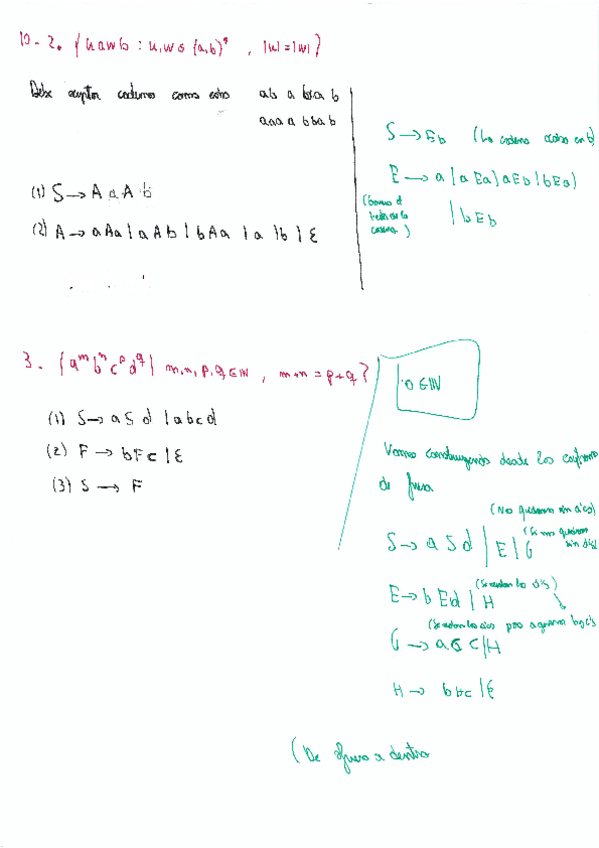 10-2. {uawb : u,w ∈ {a,b}*, |u|=|w|}
Debe aceptar cadenas como esto ab a ba b
aaa a bba b
(1) S → A a A b
(2) A → aAa | aAb | bAa | a | b | ε
S → Eb (La cadena acaba en b)
E → a | aEa | aEb | bEa |
| bEb
(Genera el
resto de la
cadena)
3. {a^m b^n c^p d^q | m,n,p,q ∈ ℕ, m+n = p+q}
(1) S → a S d | abcd
(2) F → bFc | ε
(3) S → F
0 ∈ ℕ
Vamos construyendo desde los
de fuera
(No quedan más a's)
S → a S d | E | G
(Si no quedan
más d's)
E → bEd | H
(Se acaban las d's)
(Se acaban las a's pero quedan b y c's
G → aGc | H
H → bHc | ε
(De afuera a dentro